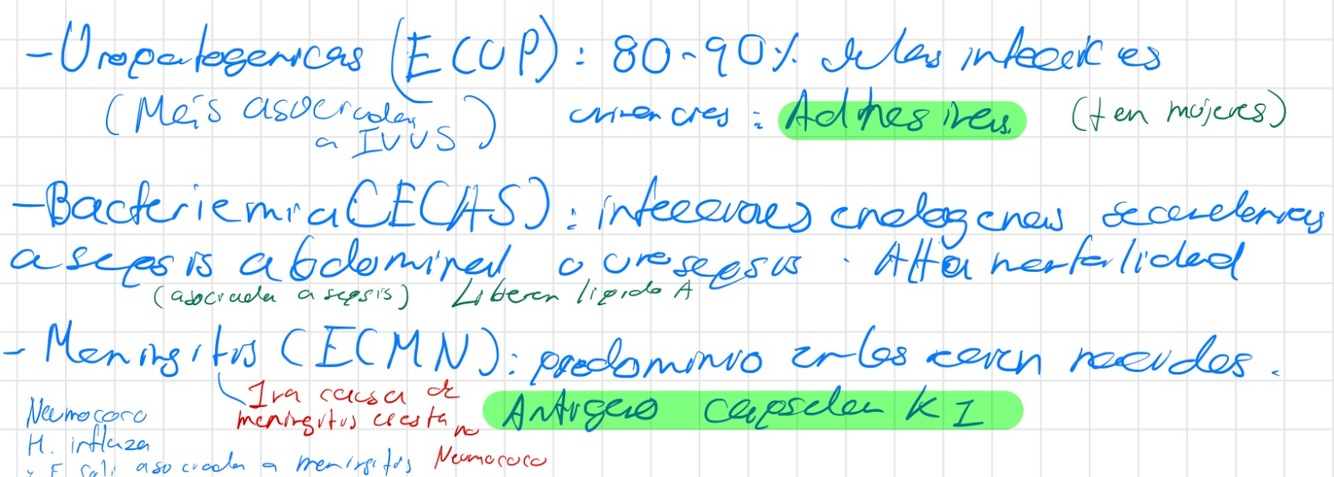 - Uropatogenicas (ECUP): 80-90% de las infecciones
(Más asociadas a IVUS)
urinarias: Adhesinas (+ en mujeres)
- Bacteriemia (ECAS): infecciones endogenas secundarias
a sepsis abdominal o urosepsis. Alta mortalidad
(asociada a sepsis) Liberan lipido A
- Meningitis (ECMN): predominio en los recien nacidos.
1ra causa de
meningitis
Neumococo
Antigeno capsular K1
Neumococo
H. influza
y E. Coli asociada a meningitis